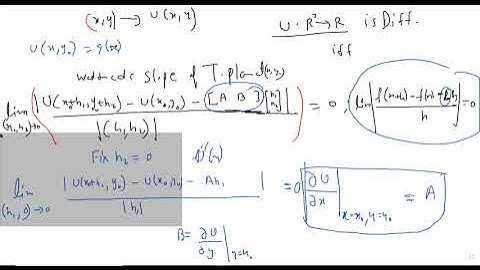 (x,y) → U(x,y)
U : R² → R is Diff.
iff
U(x,y₀) = g(x)
slope of T. plane (x₀,y₀)
lim (h₁,h₂)→0 | U(x₀+h₁,y₀+h₂) − U(x₀,y₀) − [A B][h₁ h₂] | / |(h₁,h₂)| = 0 , lim | f(x+h) − f(x) − h / h | = 0
Fix h₂ = 0
lim (h₁,0)→0 | U(x₀+h₁,y₀) − U(x₀,y₀) − Ah₁ | / |h₁| = 0
∂U/∂x |x=x₀,y=y₀ = A
B = ∂U/∂y |y=y₀